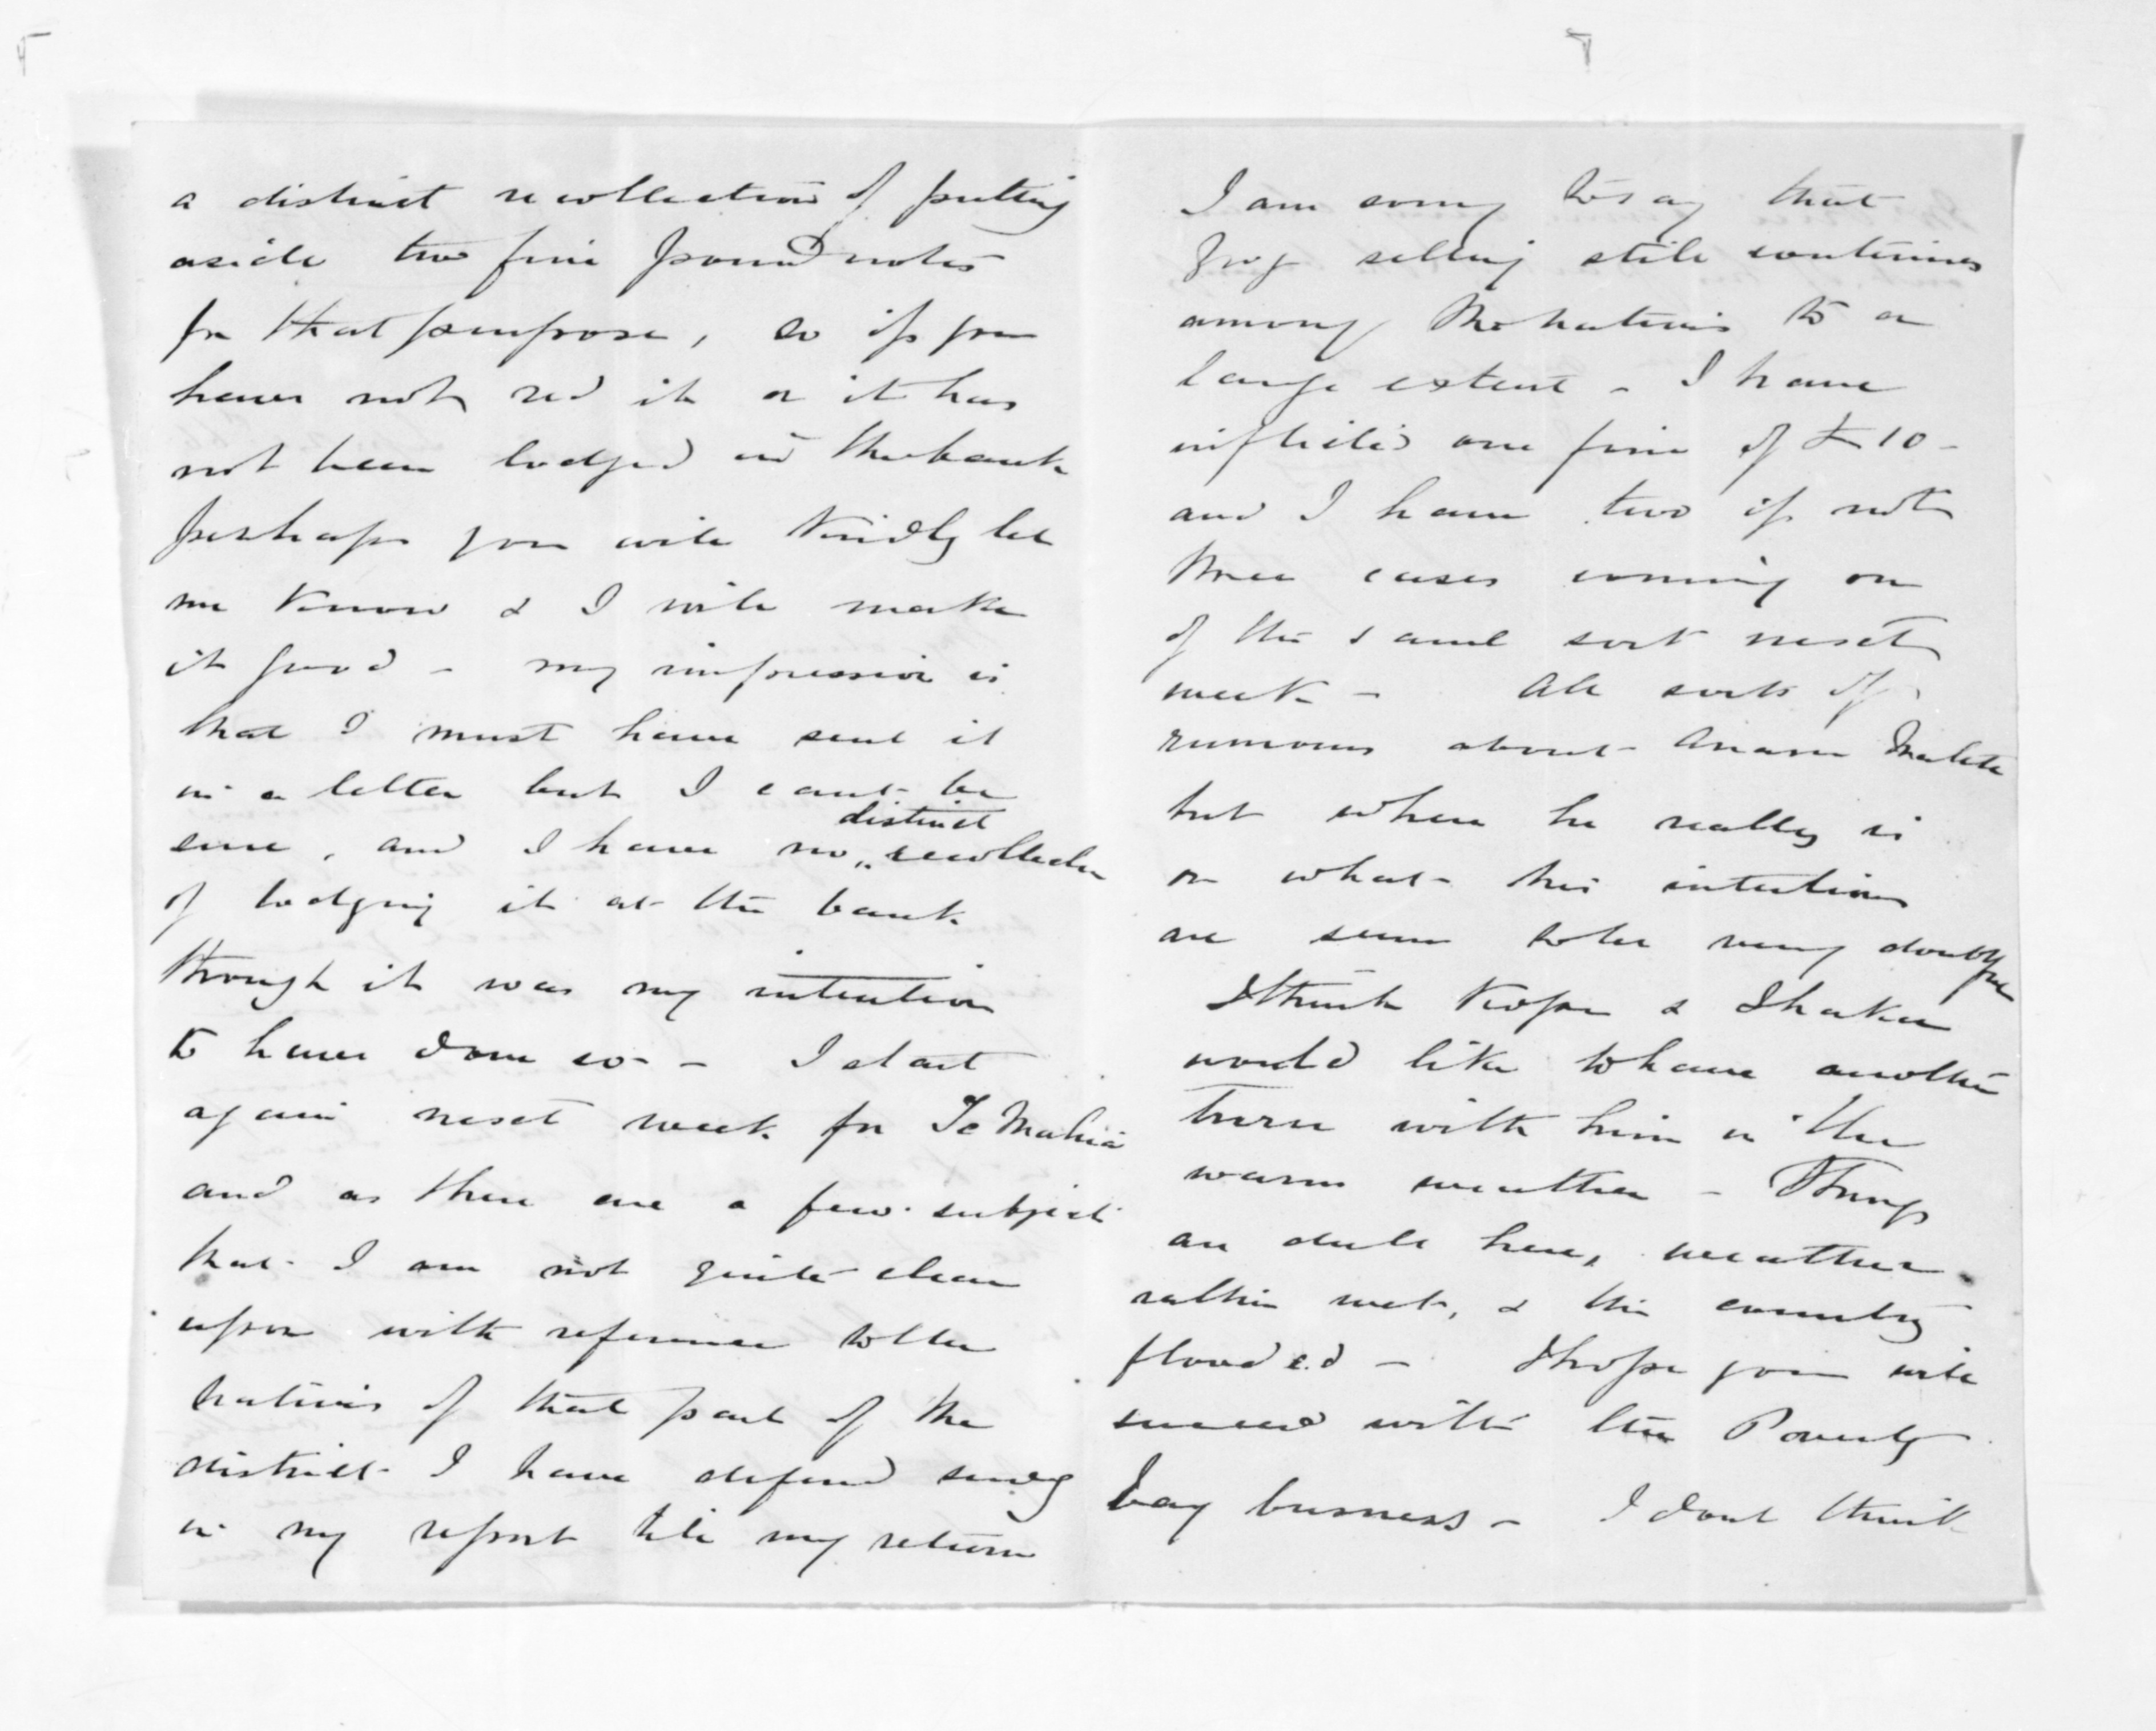 a distinct recollection of putting
aside two five pound notes
for that purpose, so if you
have not recd it or it has
not been lodged in the bank
perhaps you will kindly let
me know & I will make
it good - my impression is
that I must have sent it
in a letter but I cant be
sure, and I have no distinct recollection
of lodging it at the bank
though it was my intention
to have done so - I start
again next week for Te Mahia
and as there are a few subjects
that I am not quite clear
upon with reference to the
natives of that part of the
district I have deferred sending
in my report till my return
I am sorry to say that
grog selling still continues
among the natives to a
large extent - I have
inflicted one fine of £10 -
and I have two if not
three cases coming on
of the same sort next
week - All sorts of
rumours about Anaru Matete
but where he really is
or what his intentions
are seem to be very doubtful
I think Kopu & Ihaka
would like to have another
turn with him in the
warm weather - Things
are dull here, weather
rather wet, & the country
flooded - I hope you will
succeed with the Poverty
bay business - I dont think